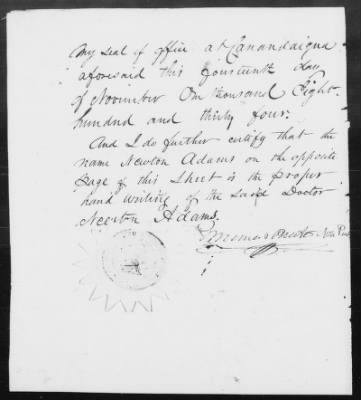 My seal of office at Canandaigua
aforesaid this fourteenth day
of November One thousand Eight
hundred and thirty four.
And I do further certify that the
name Newton Adams on the opposite
page of this Sheet is the proper
hand writing of the said Doctor
Newton Adams.